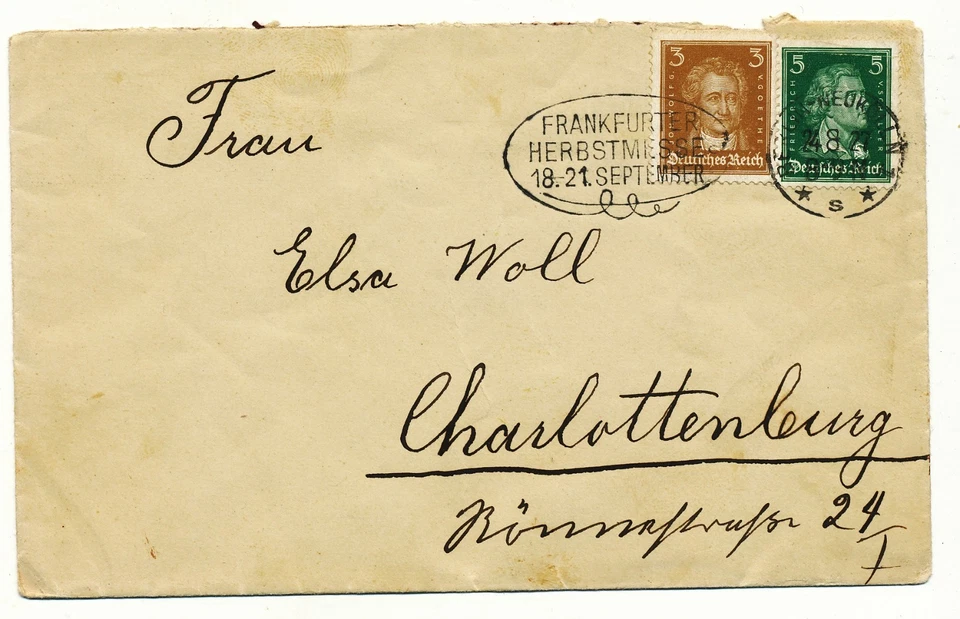 3 3
WOLFG. V. GOETHE
Deutsches Reich
5 5
FRIEDRICH
Deutsches Reich
FRANKFURTER
HERBSTMESSE
18.-21. SEPTEMBER
24.8.
★ s ★
Frau
Elsa Woll
Charlottenburg
Rönnestraße 24
I